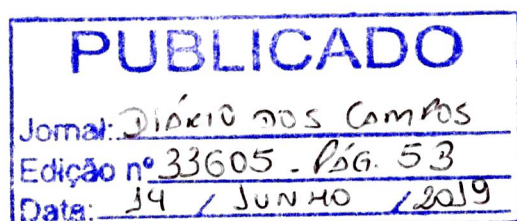 PUBLICADO
Jornal: DIÁRIO DOS CAMPOS
Edição nº 33605 - PÁG. 53
Data: 14 / JUNHO / 2019